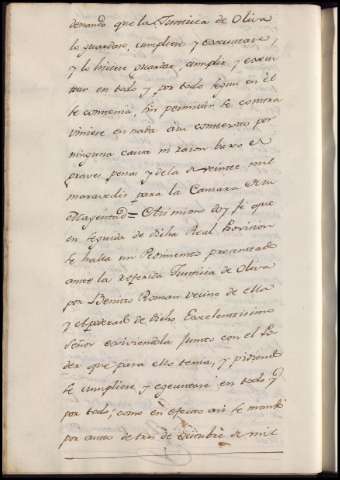 denando que la Justicia de Oliva
lo guardase, cumpliese y executase,
y lo hiciese guardar, cumplir y execu
tar en todo y por todo segun en el
se contenia, sin permitir se contra
viniese en nada a su contexto por
ninguna causa ni razon baxo de
graves penas y de la de veinte mil
maravedis para la Camara de su
Magestad = Otrosi mismo doy fe que
en seguida de dicha Real Provision
se halla un Pedimento presentado
ante la referida Justicia de Oliva
por Benito Roman vecino de ella
y Apoderado de dicho Excelentisimo
Señor exiviendola junto con el Po
der que para ello tenia, y pidiendo
se cumpliese y egecutase en todo y
por todo, como en efecto asi se mandó
por auto de tres de Octubre de mil